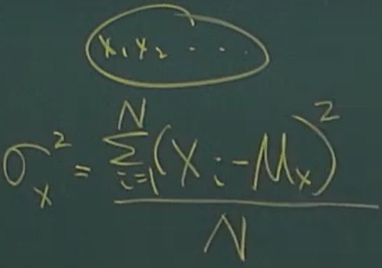 x₁ x₂ . . .
σₓ² = \frac{\sum_{i=1}^{N} (X_i - M_x)^2}{N}